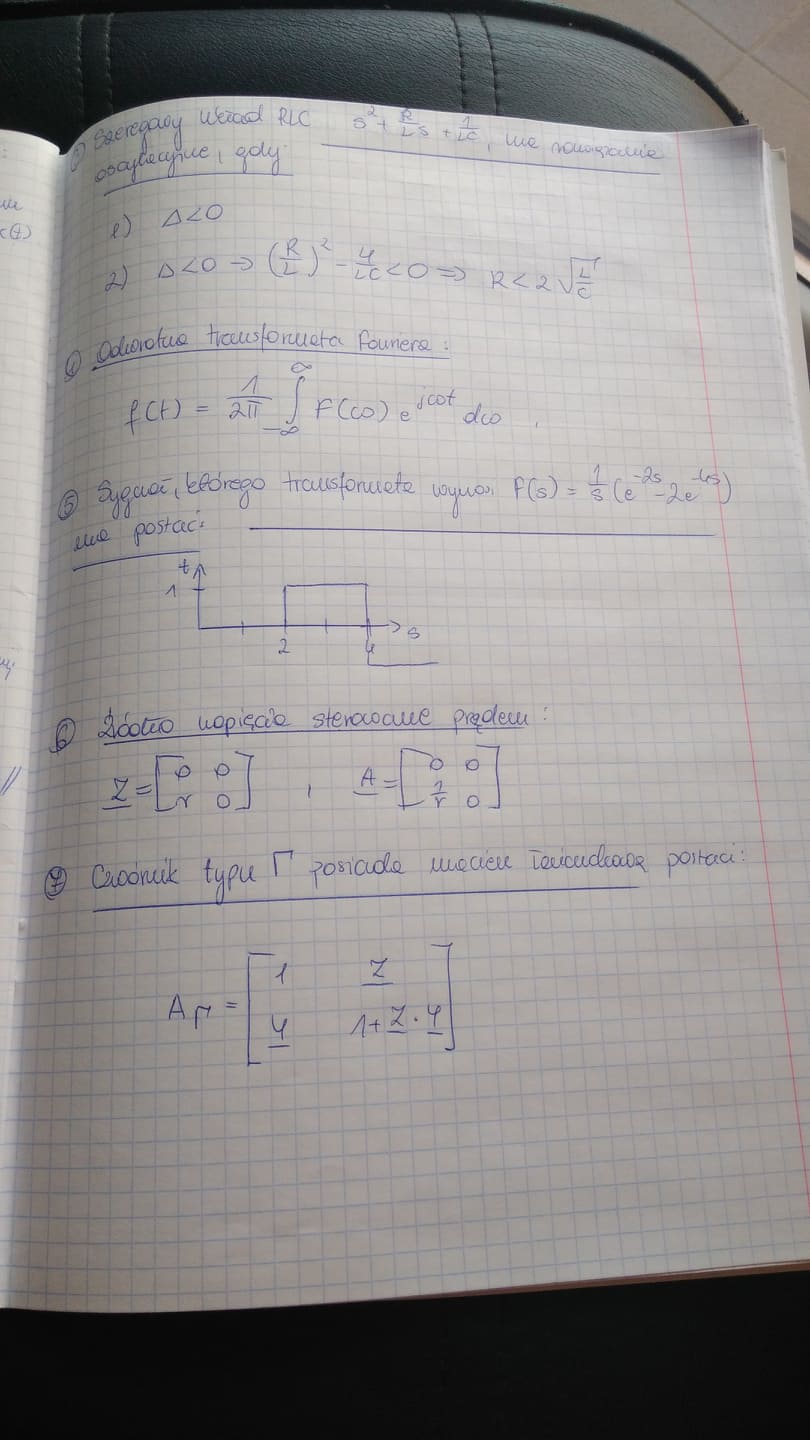 ③ Szeregowy układ RLC s² + R/L s + 1/LC, ma rozwiązanie
oscylacyjne, gdy:
1) Δ<0
2) Δ<0 → (R/L)² - 4/LC < 0 ⇒ R < 2√(L/C)
④ Odwrotna transformata Fouriera:
f(t) = 1/2π ∫_{-∞}^{∞} F(ω) e^{jωt} dω.
⑤ Sygnał, którego transformata wynosi F(s) = 1/s (e^{-2s} - 2e^{-4s})
ma postać:
t
1
s
2 4
⑥ Źródło napięcia sterowane prądem:
Z = [0 0 ; r 0] , A = [0 0 ; 1/r 0]
⑦ Czwórnik typu Γ posiada macierz łańcuchową postaci:
A_Γ = [1 Z ; Y 1+Z·Y]